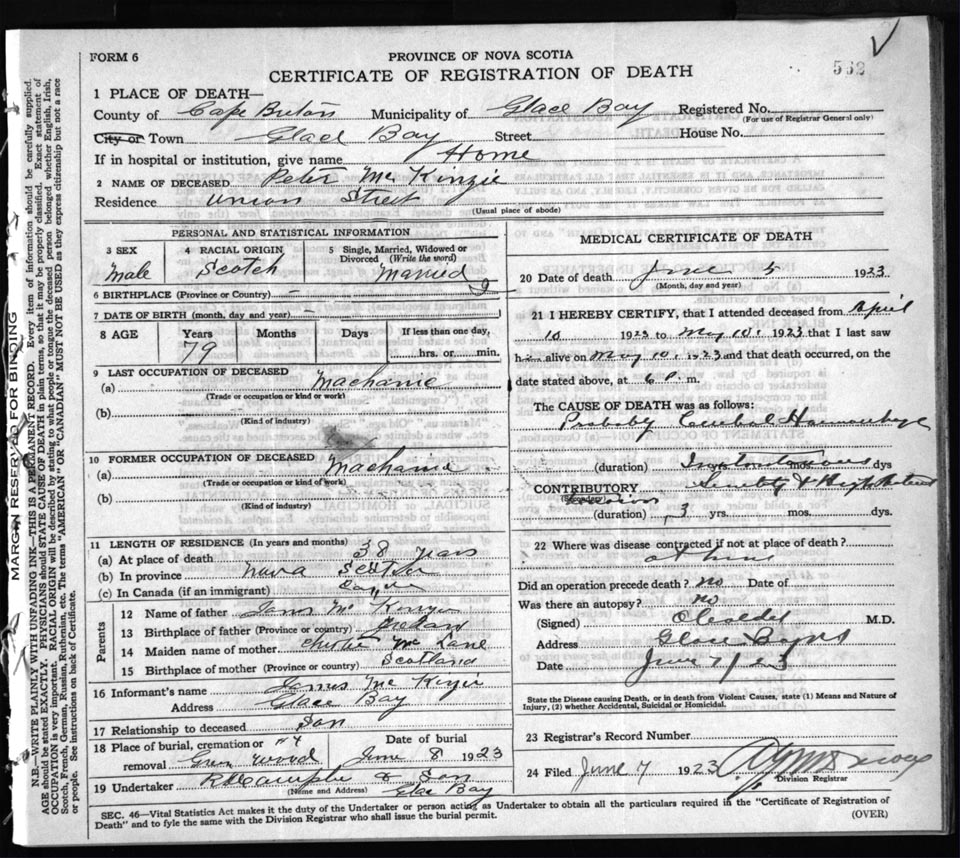 FORM 6
PROVINCE OF NOVA SCOTIA
562
CERTIFICATE OF REGISTRATION OF DEATH
1 PLACE OF DEATH—
County of Cape Breton Municipality of Glace Bay Registered No.
(For use of Registrar General only)
City or Town Glace Bay Street House No.
If in hospital or institution, give name Home
2 NAME OF DECEASED Peter Mc Kinzie
Residence Union Street
(Usual place of abode)
PERSONAL AND STATISTICAL INFORMATION
3 SEX 4 RACIAL ORIGIN 5 Single, Married, Widowed or Divorced (Write the word)
Male Scotch Married
6 BIRTHPLACE (Province or Country)
7 DATE OF BIRTH (month, day and year)
8 AGE Years Months Days If less than one day,
79 hrs. or min.
9 LAST OCCUPATION OF DECEASED
(a) Machanic
(Trade or occupation or kind or work)
(b)
(Kind of industry)
10 FORMER OCCUPATION OF DECEASED
(a) Machanic
(Trade or occupation or kind of work)
(b)
(Kind of industry)
11 LENGTH OF RESIDENCE (In years and months)
(a) At place of death 38 years
(b) In province Nova Scotia
(c) In Canada (if an immigrant)
Parents
12 Name of father James Mc Kenzie
13 Birthplace of father (Province or country)
14 Maiden name of mother Christie Mc Lane
15 Birthplace of mother (Province or country) Scotland
16 Informant's name James Mc Kenzie
Address Glace Bay
17 Relationship to deceased Son
18 Place of burial, cremation or removal Green Wood
Date of burial June 8 1923
19 Undertaker & Son
(Name and Address) Glace Bay
MEDICAL CERTIFICATE OF DEATH
20 Date of death June 5 1923
(Month, day and year)
21 I HEREBY CERTIFY, that I attended deceased from April
10 1923 to May 10, 1923 that I last saw
him alive on May 10, 1923 and that death occurred, on the
date stated above, at 6 P. m.
The CAUSE OF DEATH was as follows:
Probably Cerebral Haemorrhage
(duration) Instantaneous mos. dys
CONTRIBUTORY Senility &
(Secondary)
(duration) 3 yrs. mos. dys.
22 Where was disease contracted if not at place of death?
at home
Did an operation precede death? no Date of
Was there an autopsy? no
(Signed) M.D.
Address Glace Bay NS
Date June 7/23
State the Disease causing Death, or in death from Violent Causes, state (1) Means and Nature of
Injury, (2) whether Accidental, Suicidal or Homicidal.
23 Registrar's Record Number
24 Filed June 7 1923
Division Registrar
SEC. 46—Vital Statistics Act makes it the duty of the Undertaker or person acting as Undertaker to obtain all the particulars required in the "Certificate of Registration of
Death" and to fyle the same with the Division Registrar who shall issue the burial permit.
(OVER)
MARGIN RESERVED FOR BINDING
N.B.—WRITE PLAINLY WITH UNFADING INK—THIS IS A PERMANENT RECORD. Every item of information should be carefully supplied.
AGE should be stated EXACTLY. PHYSICIANS should STATE CAUSE OF DEATH in plain terms, so that it may be properly classified. Exact statement of
OCCUPATION is very important. RACIAL ORIGIN will be described by stating to what people or tongue the deceased person belonged whether English, Irish,
Scotch, French, German, Russian, Ruthenian, etc. The terms "AMERICAN" OR "CANADIAN" MUST NOT BE USED as they express citizenship but not a race
or people. See instructions on back of Certificate.